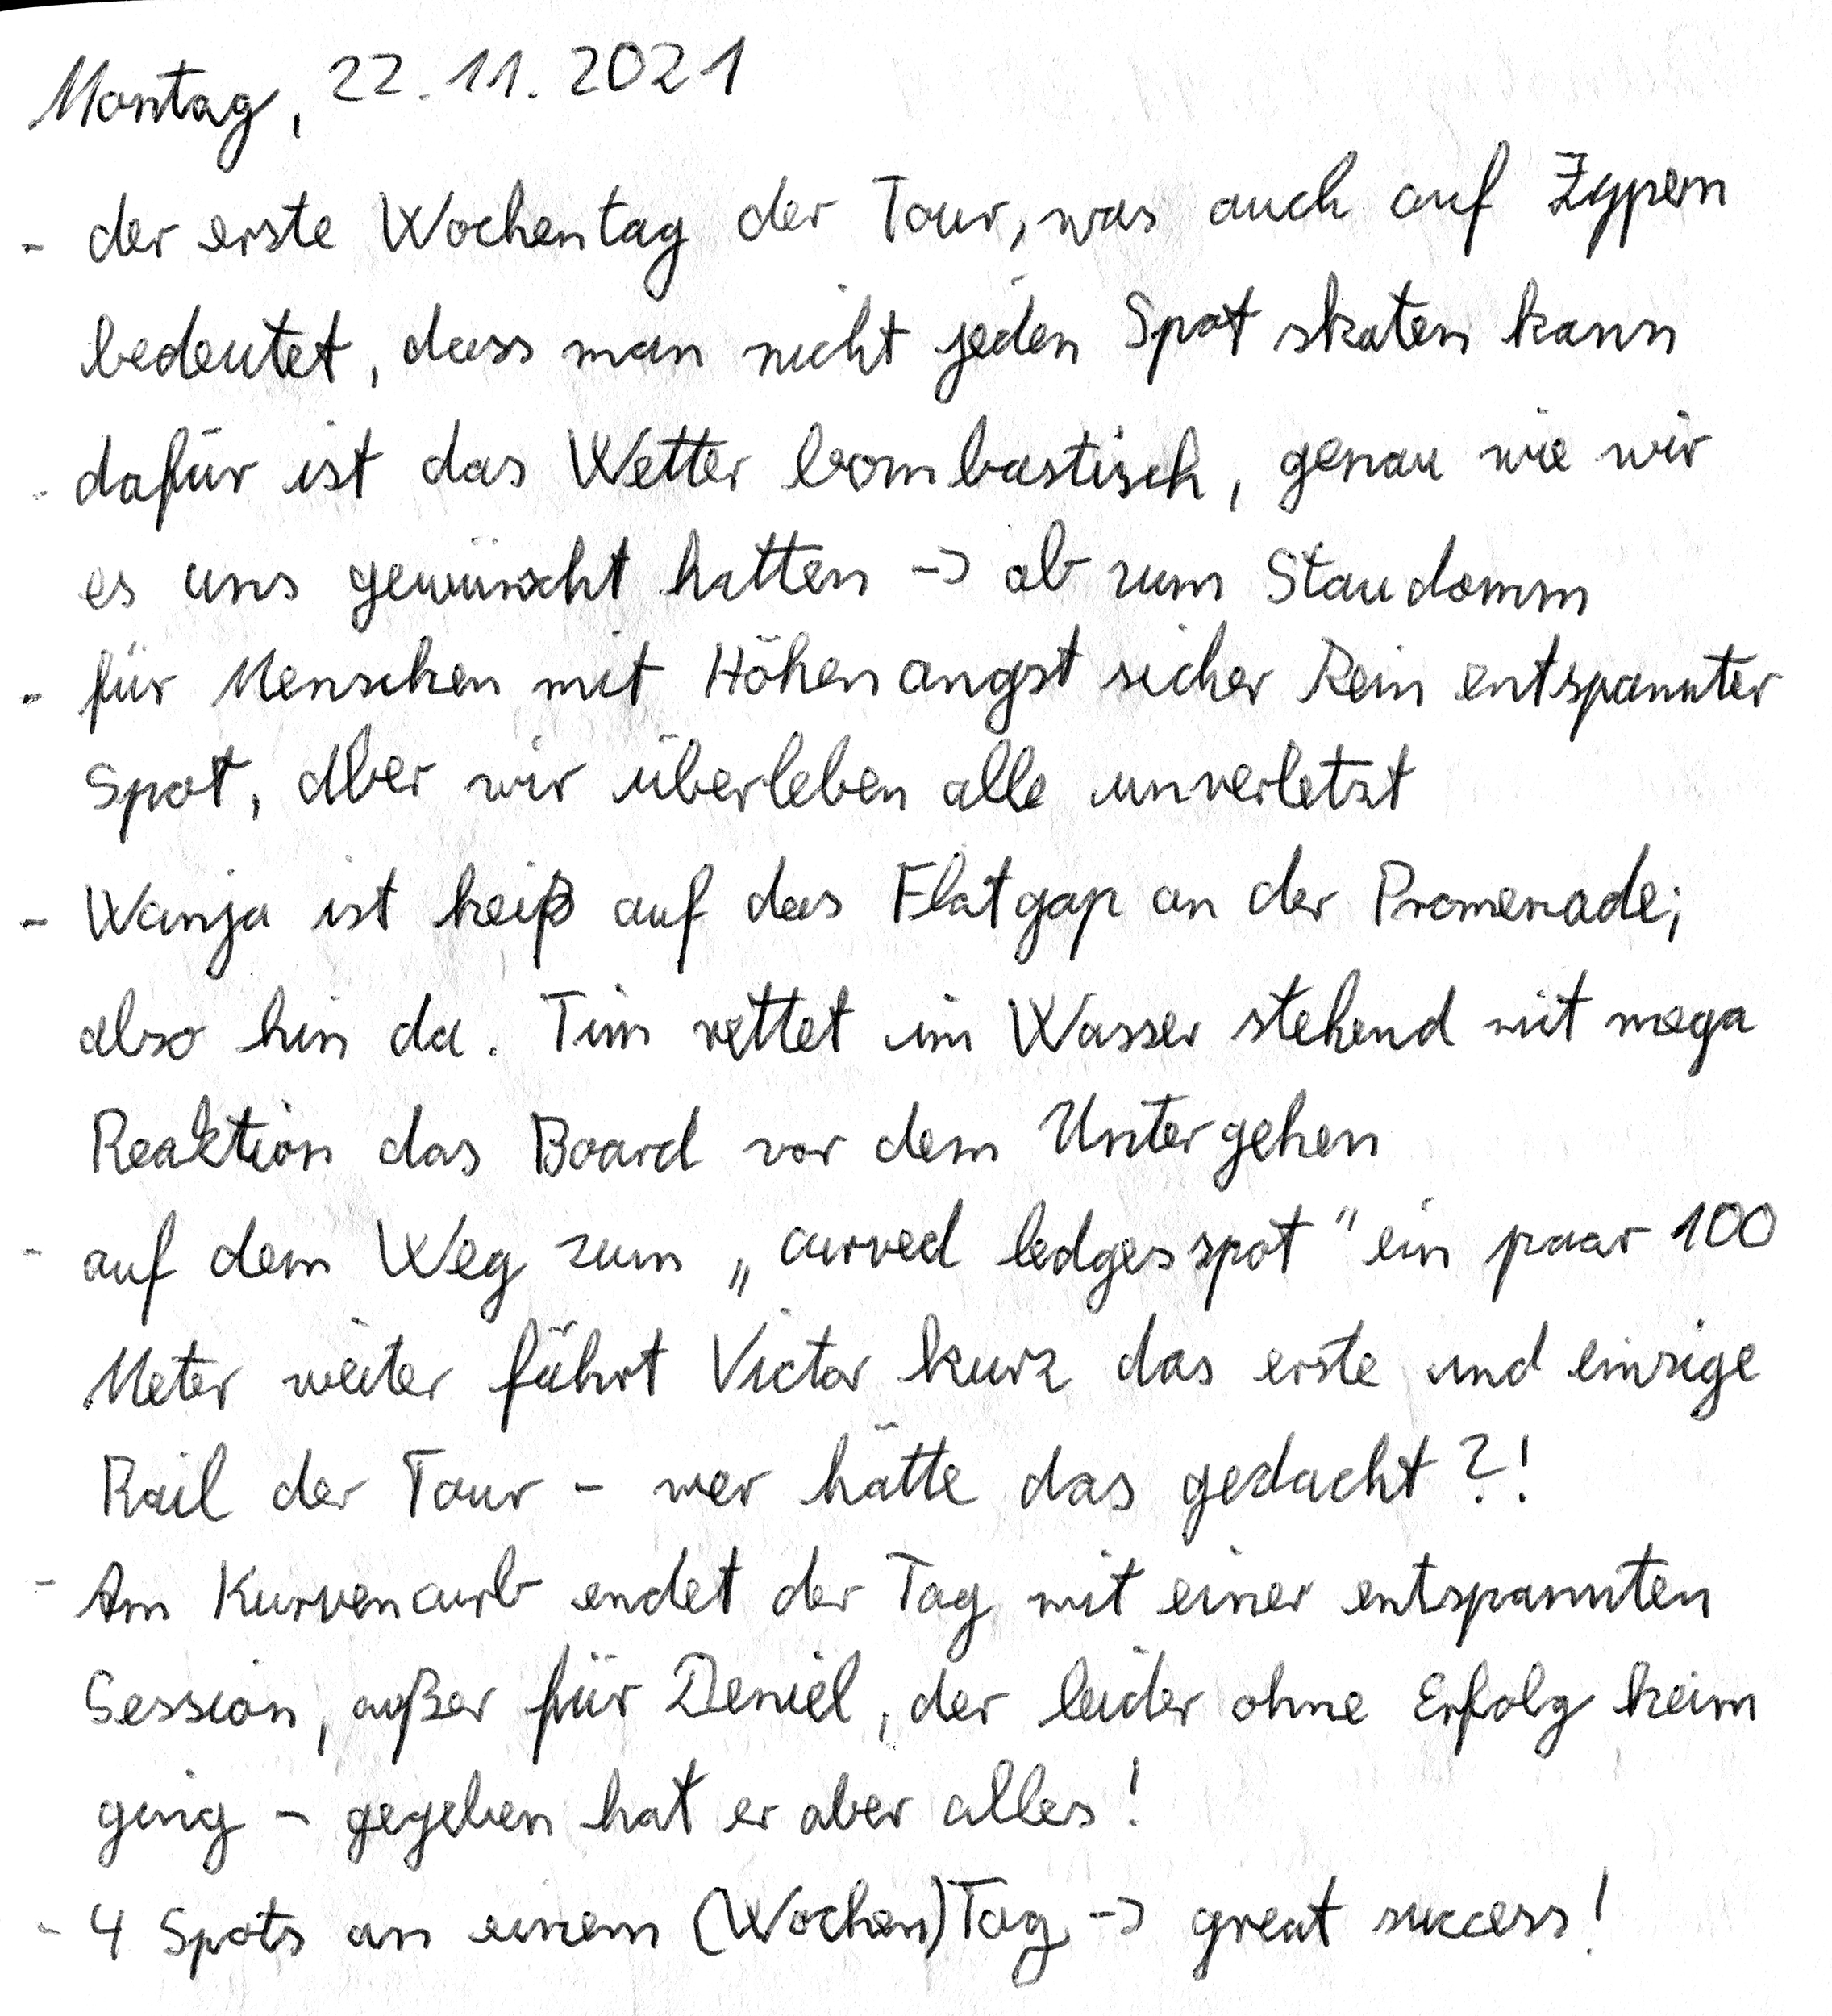 Montag, 22.11.2021
- der erste Wochentag der Tour, was auch auf Zypern
bedeutet, dass man nicht jeden Spot skaten kann
- dafür ist das Wetter bombastisch, genau wie wir
es uns gewünscht hatten -> ab zum Staudamm
- für Menschen mit Höhenangst sicher kein entspannter
Spot, aber wir überleben alle unverletzt
- Wanja ist heiß auf das Flatgap an der Promenade;
also hin da. Tim rettet im Wasser stehend mit mega
Reaktion das Board vor dem Untergehen
- auf dem Weg zum „curved ledges spot" ein paar 100
Meter weiter fährt Victor kurz das erste und einzige
Rail der Tour - wer hätte das gedacht?!
- Am Kurvencurb endet der Tag mit einer entspannten
Session, außer für Deniel, der leider ohne Erfolg heim
ging - gegeben hat er aber alles!
- 4 Spots an einem (Wochen)Tag -> great success!